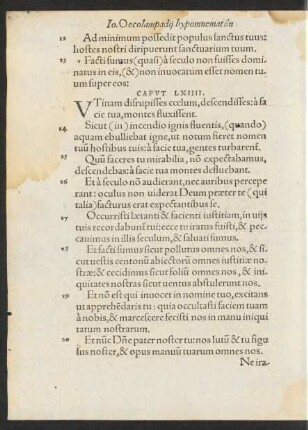 Io. Oecolampadij hypomnematôn
22 Ad minimum possedit populus sanctus tuus:
hostes nostri diripuerunt sanctuarium tuum.
23 Facti sumus (quasi) à seculo non fuisses domi
natus in eis, (&) non inuocatum esset nomen tu
um super eos:
CAPVT LXIIII.
VTinam disrupisses cœlum, descendisses: à fa
cie tua, montes fluxissent.
24 Sicut (in) incendio ignis fluentis, (quando)
aquam ebulliebat igne, ut notum fieret nomen
tuũ hostibus tuis: à facie tua, gentes turbarent̃.
25 Quũ faceres tu mirabilia, nõ expectabamus,
descendebas: à facie tua montes defluebant.
26 Et à seculo nõ audierant, nec auribus percepe
rant: oculus non uiderat Deum præter te (qui
talia) facturus erat expectantibus se.
27 Occurristi lætanti & facienti iustitiam, in uijs
tuis recordabunt̃ tui: ecce tu iratus fuisti, & pec
cauimus in illis seculum, & saluati sumus.
28 Et facti sumus sicut pollutus omnes nos, & si
cut uestis centonũ abiectorũ omnes iustitiæ no
stræ: & cecidimus sicut foliũ omnes nos, & ini
quitates nostras sicut uentus abstulerunt nos.
29 Et nõ est qui inuocet in nomine tuo, excitans
ut apprehẽdaris tu: quia occultasti faciem tuam
à nobis, & marcescere fecisti nos in manu iniqui
tatum nostrarum.
20 Et nũc Dñe pater noster tu: nos lutũ & tu figu
lus noster, & opus manuũ tuarum omnes nos.
Ne ira